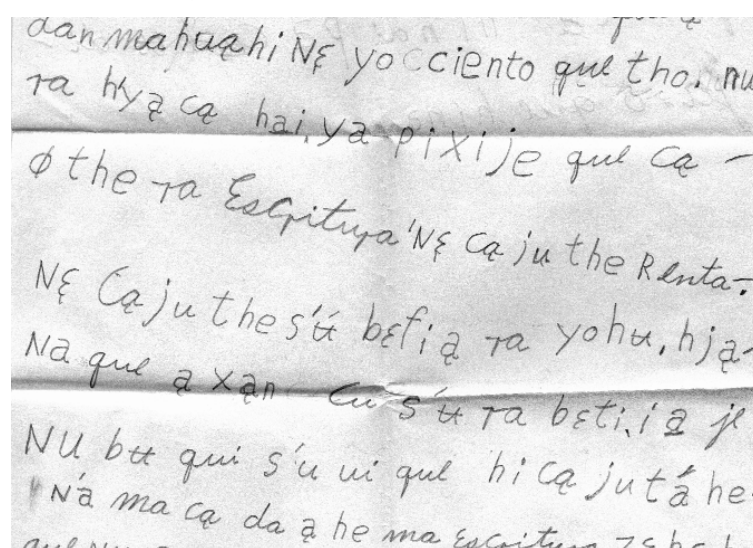 dan mahuąhi Nę yocciento que tho. nu
ra hyą cą hai. ya pixije que Cą -
Øthe ra Escritura 'Nę Cą ju the Renta -.
Nę Cą ju the s'ʉ́ bɛfi ą ra yohʉ, hją-
Na que ą xąn Cu s'ʉ ra bɛti. i ą je
NU bʉ qui s'u ui que hi cą jutá he
N'a ma cą da ą he ma Escritura